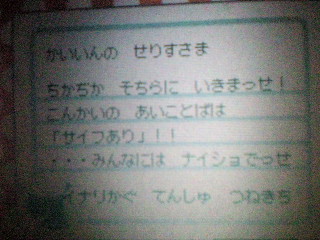 かいいんの　せりすさま
ちかぢか　そちらに　いきまっせ！
こんかいの　あいことばは
「サイフあり」！！
・・・みんなには　ナイショでっせ
イナリかぐ　てんしゅ　つねきち